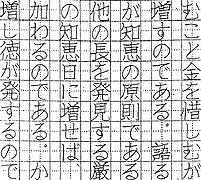 むこと金を惜しむが
増すのである‥語る
が知恵の原則である
他の長を発見する厳
の知恵日に増せば
加わるのである‥か
増し徳が発するので